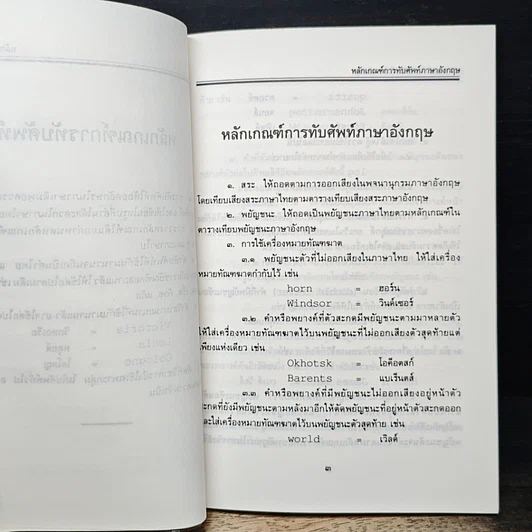 หลักเกณฑ์การทับศัพท์ภาษาอังกฤษ
หลักเกณฑ์การทับศัพท์ภาษาอังกฤษ
๑. สระ ให้ถอดตามการออกเสียงในพจนานุกรมภาษาอังกฤษ
โดยเทียบเสียงสระภาษาไทยตามตารางเทียบเสียงสระภาษาอังกฤษ
๒. พยัญชนะ ให้ถอดเป็นพยัญชนะภาษาไทยตามหลักเกณฑ์ใน
ตารางเทียบพยัญชนะภาษาอังกฤษ
๓. การใช้เครื่องหมายทัณฑฆาต
๓.๑ พยัญชนะตัวที่ไม่ออกเสียงในภาษาไทย ให้ใส่เครื่อง
หมายทัณฑฆาตกำกับไว้ เช่น
horn = ฮอร์น
Windsor = วินด์เซอร์
๓.๒ คำหรือพยางค์ที่ตัวสะกดมีพยัญชนะตามมาหลายตัว
ให้ใส่เครื่องหมายทัณฑฆาตไว้บนพยัญชนะที่ไม่ออกเสียงตัวสุดท้ายแต่
เพียงแห่งเดียว เช่น
Okhotsk = โอค็อตสก์
Barents = แบเร็นตส์
๓.๓ คำหรือพยางค์ที่มีพยัญชนะไม่ออกเสียงอยู่หน้าตัว
สะกดที่ยังมีพยัญชนะตามหลังมาอีกให้ตัดพยัญชนะที่อยู่หน้าตัวสะกดออก
และใส่เครื่องหมายทัณฑฆาตไว้บนพยัญชนะตัวสุดท้าย เช่น
world = เวิลด์
๓